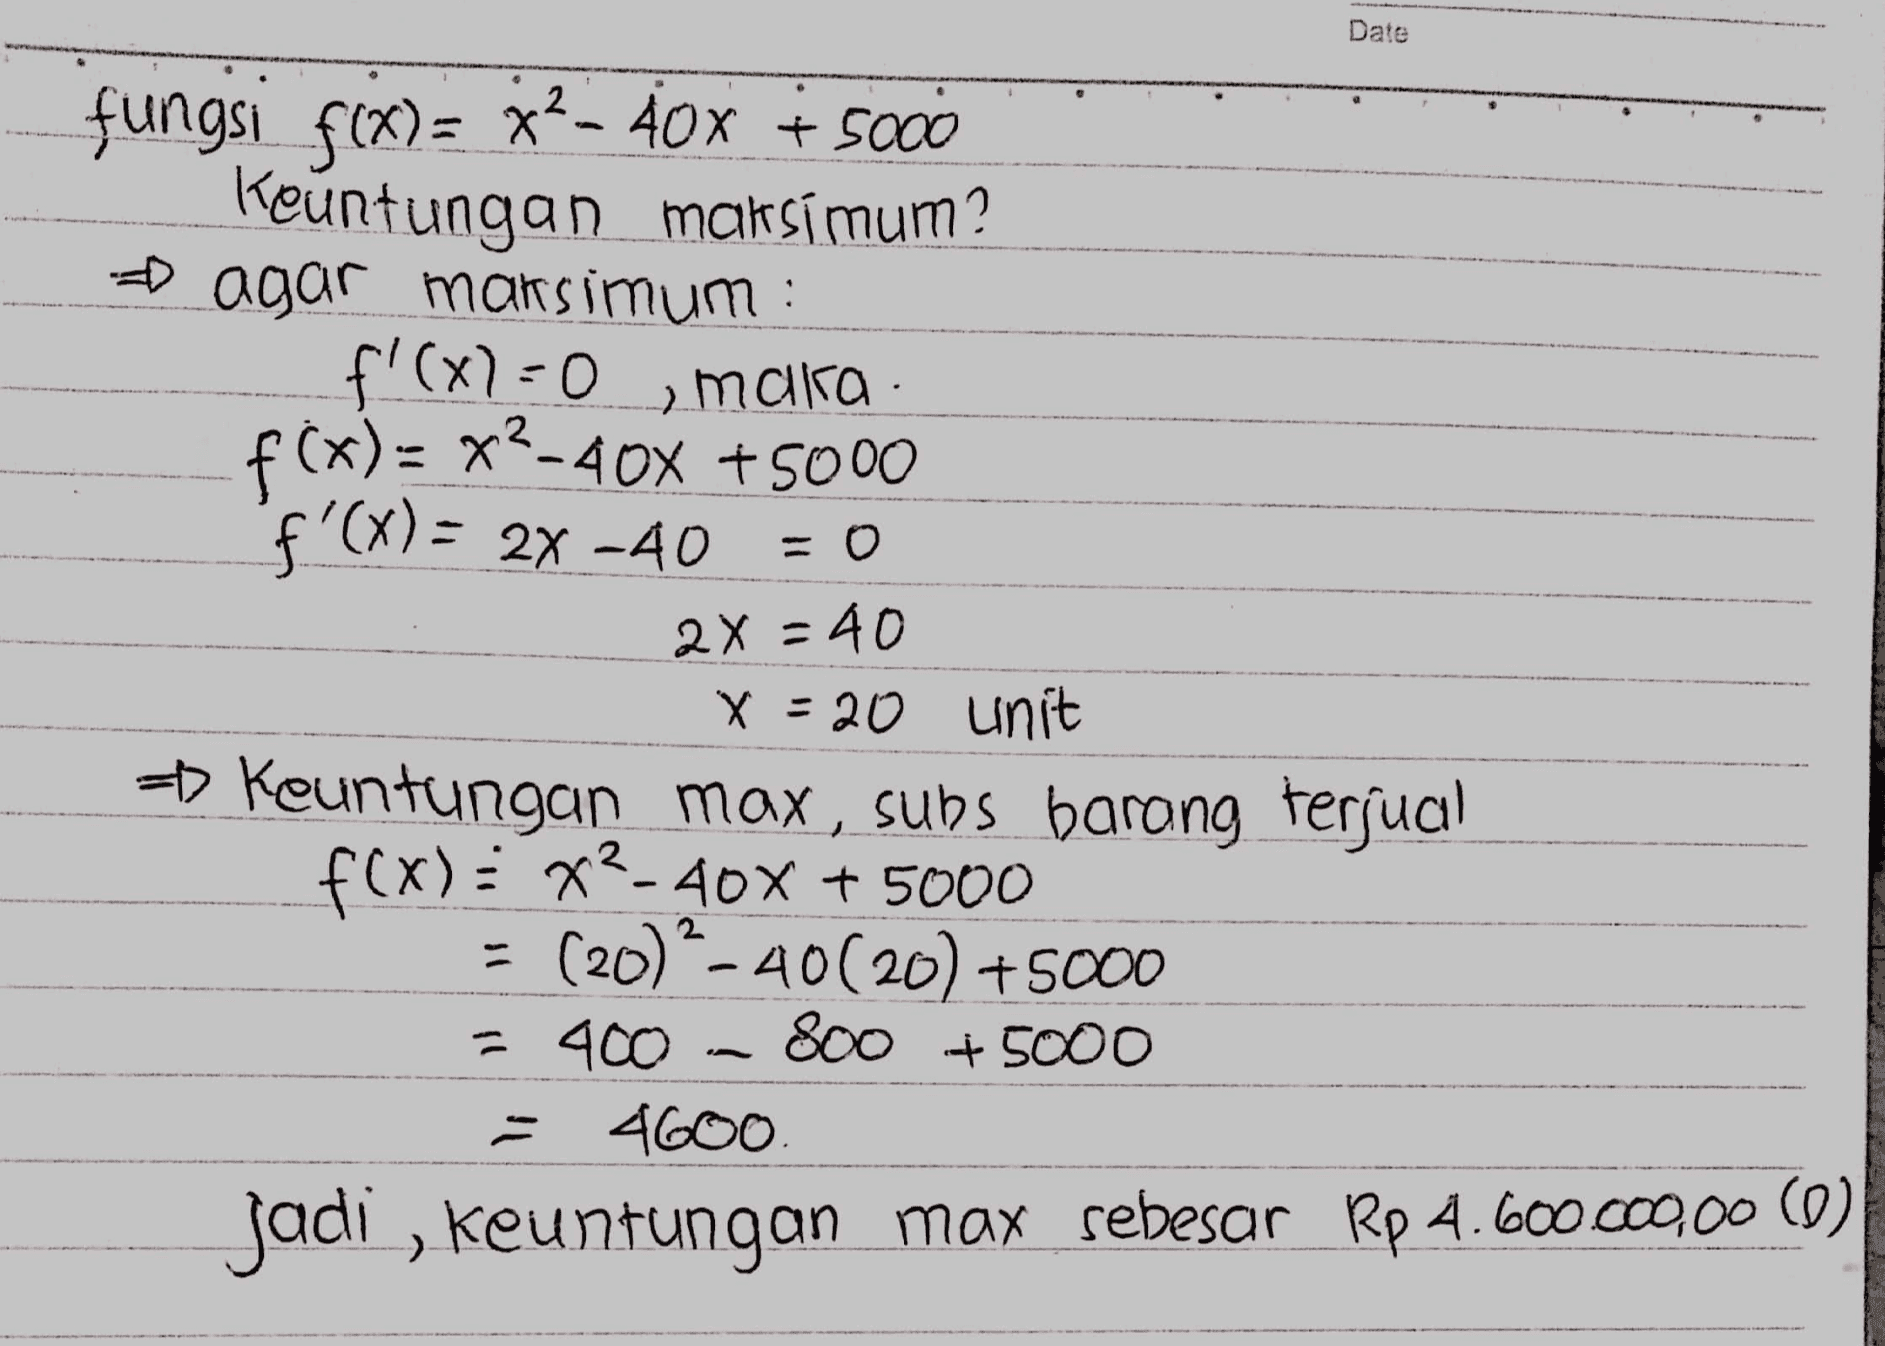 Date
fungsi f(x) = x² - 40x + 5000
Keuntungan maksimum?
⇒ agar maksimum :
f'(x) = 0 , maka.
f(x) = x² - 40x + 5000
f'(x) = 2x - 40 = 0
2x = 40
x = 20 unit
⇒ Keuntungan max, subs barang terjual
f(x) = x² - 40x + 5000
= (20)² - 40(20) + 5000
= 400 - 800 + 5000
= 4600.
Jadi, keuntungan max sebesar Rp 4.600.000,00 (D)